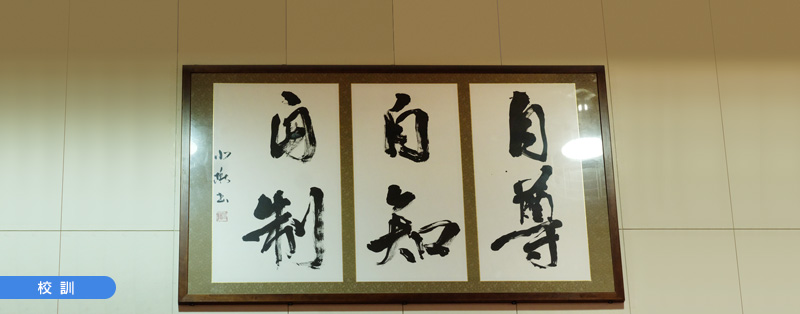 自尊
自知
自制
校訓